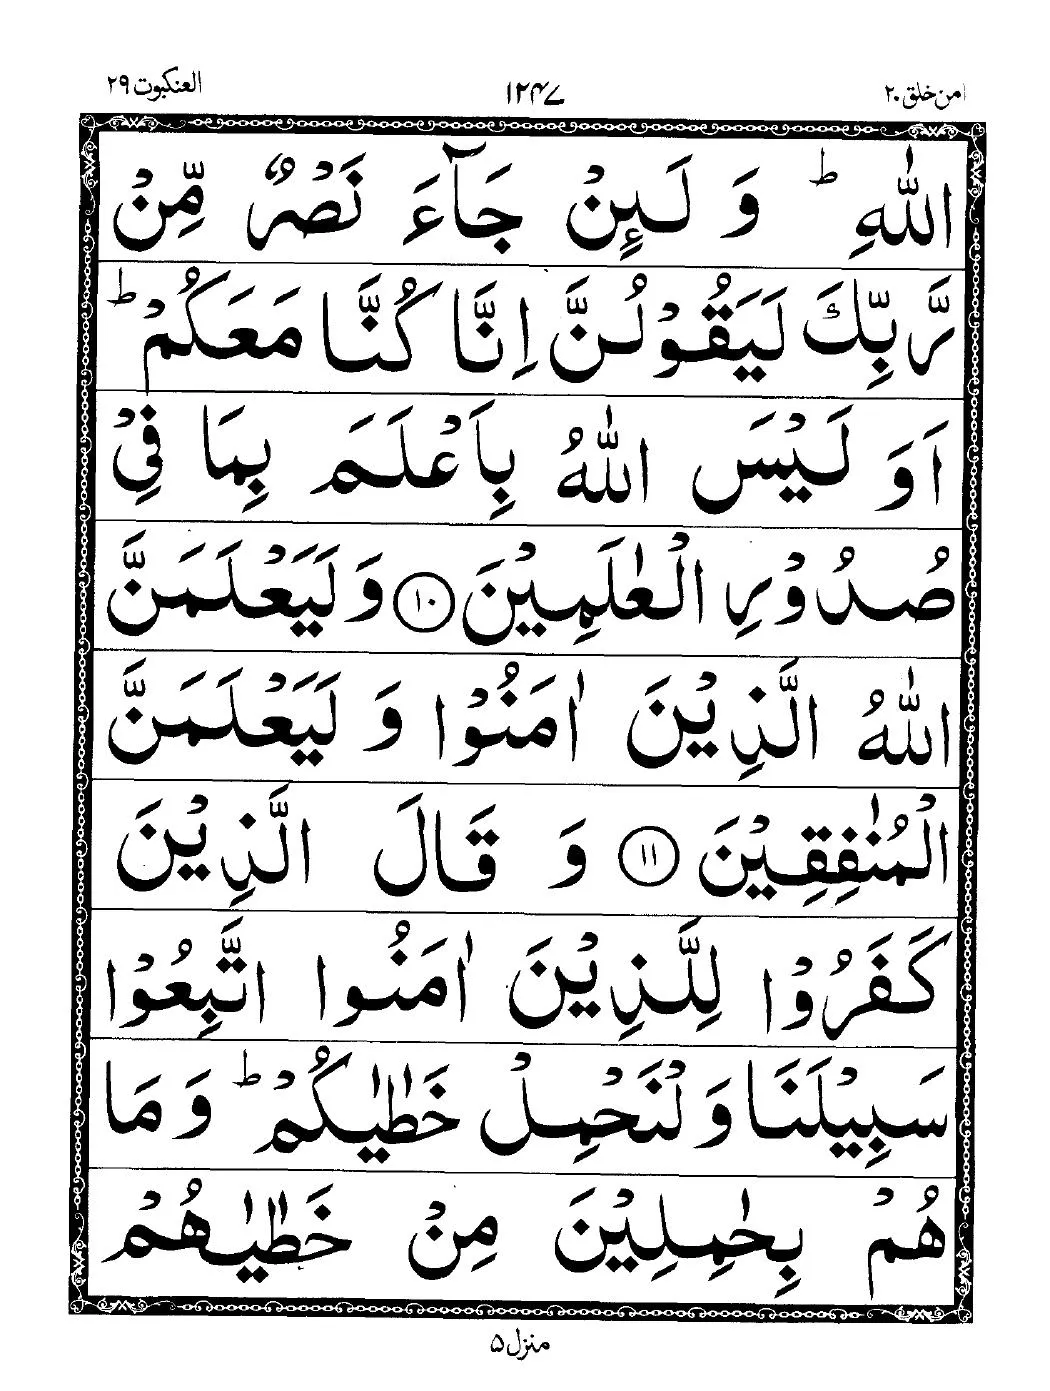 امن خلق ۲۰ ۱۲۴۷ العنکبوت ۲۹
اللّٰهِ ؕ وَ لَىِٕنْ جَآءَ نَصْرٌ مِّنْ
رَّبِّكَ لَیَقُوْلُنَّ اِنَّا كُنَّا مَعَكُمْ ؕ
اَوَ لَیْسَ اللّٰهُ بِاَعْلَمَ بِمَا فِیْ
صُدُوْرِ الْعٰلَمِیْنَ ۱۰ وَ لَیَعْلَمَنَّ
اللّٰهُ الَّذِیْنَ اٰمَنُوْا وَ لَیَعْلَمَنَّ
الْمُنٰفِقِیْنَ ۱۱ وَ قَالَ الَّذِیْنَ
كَفَرُوْا لِلَّذِیْنَ اٰمَنُوا اتَّبِعُوْا
سَبِیْلَنَا وَ لْنَحْمِلْ خَطٰیٰكُمْ ؕ وَ مَا
هُمْ بِحٰمِلِیْنَ مِنْ خَطٰیٰهُمْ
منزل ۵